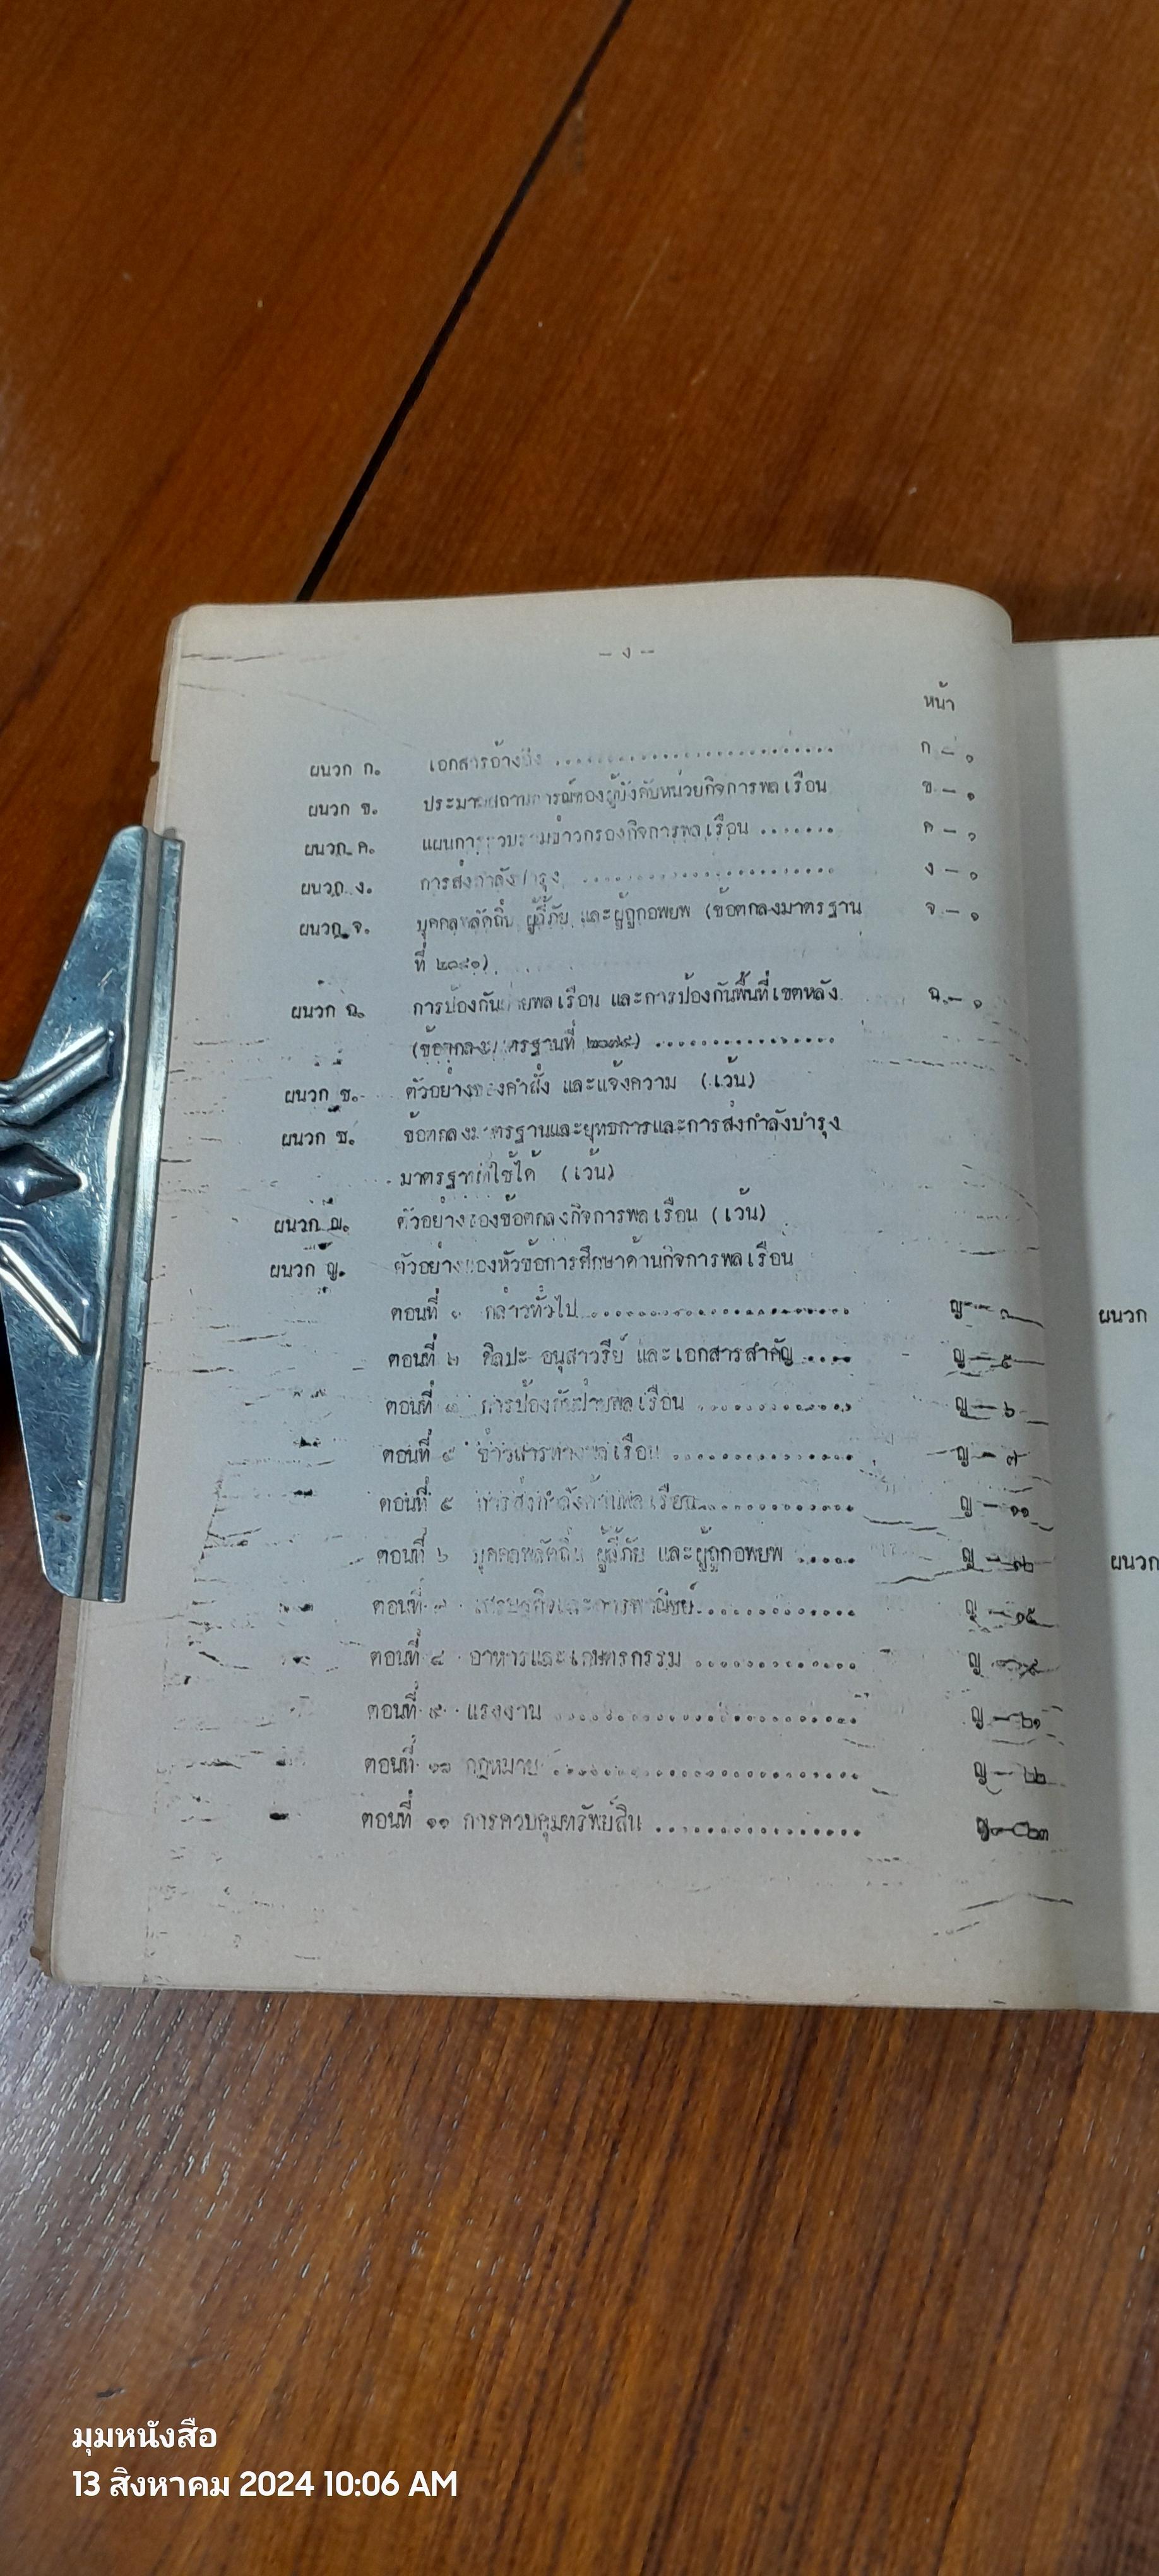 - ง -
หน้า
ผนวก ก. เอกสารอ้างอิง .............................. ก - ๑
ผนวก ข. ประมาณสถานการณ์ของผู้บังคับหน่วยกิจการพลเรือน ข - ๑
ผนวก ค. แผนการรวบรวมข่าวกรองกิจการพลเรือน ....... ค - ๑
ผนวก ง. การส่งกำลังบำรุง .......................... ง - ๑
ผนวก จ. บุคคลพลัดถิ่น ผู้ลี้ภัย และผู้ถูกอพยพ (ข้อตกลงมาตรฐาน จ - ๑
ที่
ผนวก ฉ. การป้องกันฝ่ายพลเรือน และการป้องกันพื้นที่เขตหลัง ฉ - ๑
(ข้อตกลงมาตรฐานที่ ...............
ผนวก ช. ตัวอย่างของคำสั่ง และแจ้งความ (เว้น)
ผนวก ซ. ข้อตกลงมาตรฐานและยุทธการและการส่งกำลังบำรุง
มาตรฐานที่ใช้ได้ (เว้น)
ผนวก ฌ. ตัวอย่างของข้อตกลงกิจการพลเรือน (เว้น)
ผนวก ญ. ตัวอย่างของหัวข้อการศึกษาด้านกิจการพลเรือน
ตอนที่ ๑ กล่าวทั่วไป........................ ญ -
ตอนที่ ๒ ศิลปะ อนุสาวรีย์ และเอกสารสำคัญ .... ญ - ๕
ตอนที่ ๓ การป้องกันฝ่ายพลเรือน ............. ญ - ๖
ตอนที่ ๔ ข่าวสารทางพลเรือน ............... ญ - ๗
ตอนที่ ๕ การส่งกำลังด้านพลเรือน............. ญ - ๑๐
ตอนที่ ๖ บุคคลพลัดถิ่น ผู้ลี้ภัย และผู้ถูกอพยพ ...... ญ -
ตอนที่ ๗ เศรษฐกิจและการพาณิชย์............. ญ - ๑๕
ตอนที่ ๘ อาหารและเกษตรกรรม .............. ญ -
ตอนที่ ๙ แรงงาน .......................... ญ - ๒๑
ตอนที่ ๑๐ กฎหมาย ......................... ญ - ๒๒
ตอนที่ ๑๑ การควบคุมทรัพย์สิน ................ ญ - ๒๓
ผนวก
ผนวก
มุมหนังสือ
13 สิงหาคม 2024 10:06 AM